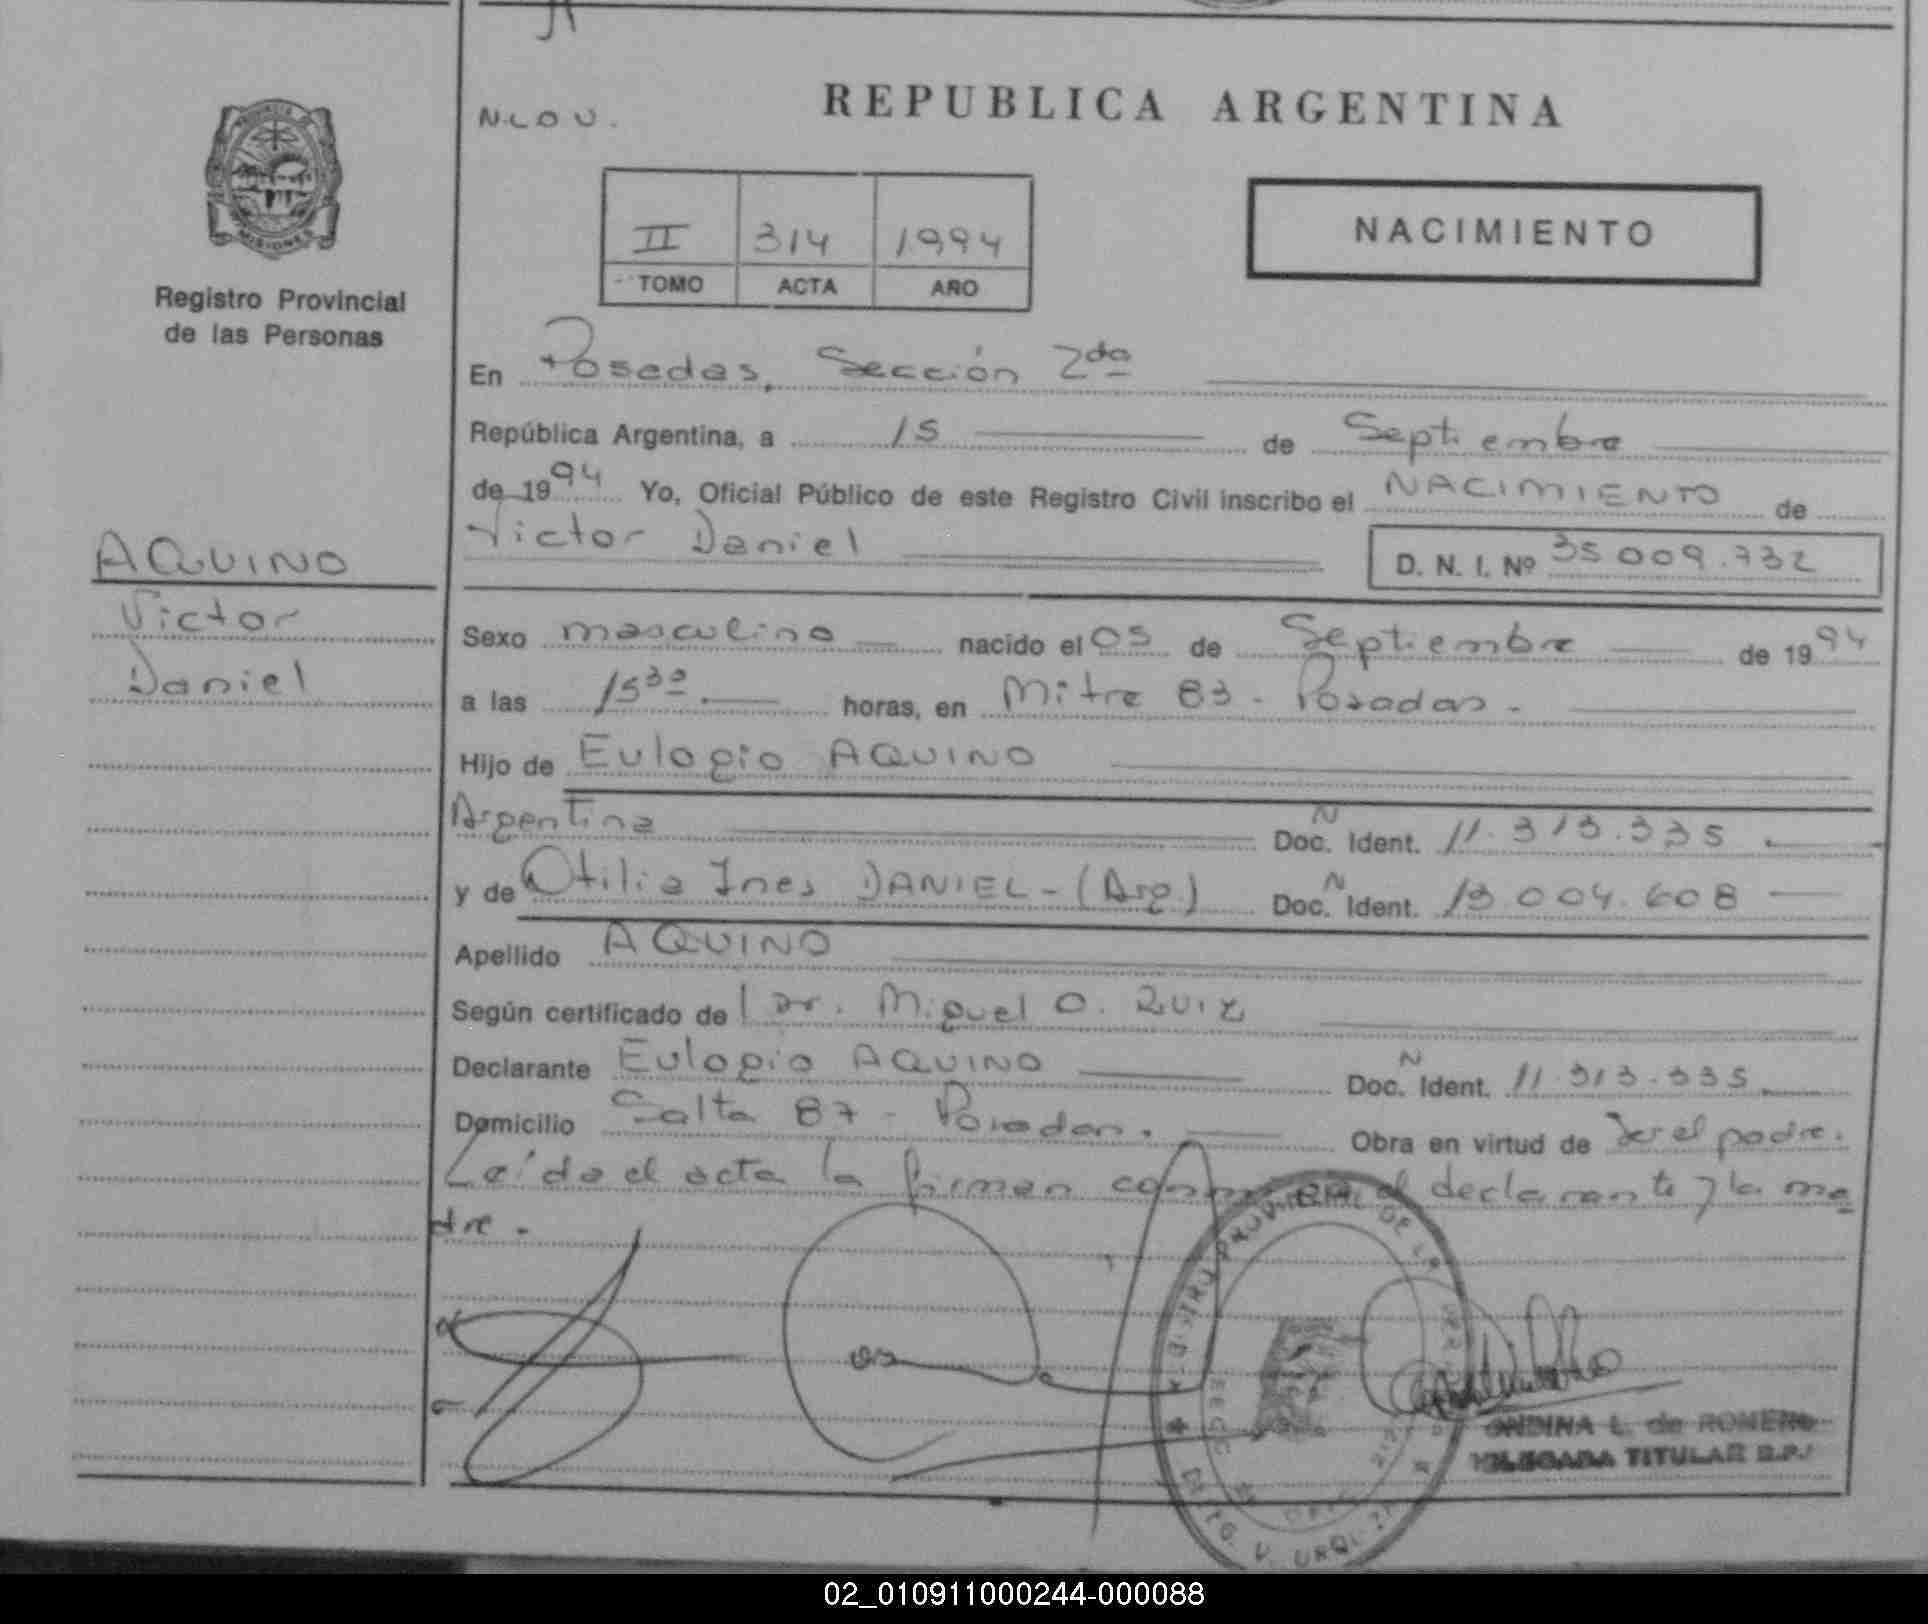 REPUBLICA ARGENTINA
N.L.O.U.
II 314 1994
TOMO ACTA AÑO
NACIMIENTO
MISIONES
Registro Provincial
de las Personas
AQUINO
Victor
Daniel
En Posadas, Sección 2da
República Argentina, a 15 de Septiembre
de 1994 Yo, Oficial Público de este Registro Civil inscribo el NACIMIENTO de
Victor Daniel D. N. I. Nº 35 009.732
Sexo masculino nacido el 05 de Septiembre de 1994
a las 15 30 horas, en Mitre 83 - Posadas.
Hijo de Eulogio AQUINO
Argentina Doc. N Ident. 11.313.335
y de Otilia Ines DANIEL - (Arg.) Doc. N Ident. 13 004.608
Apellido AQUINO
Según certificado del Dr. Miguel O. Ruiz
Declarante Eulogio AQUINO Doc. N Ident. 11.313.335
Domicilio Salta 87 - Posadas. Obra en virtud de ser el padre.
Leída el acta la firman conmigo el declarante y la ma
dre.
PROVINCIAL DE
ONDINA L. de ROMERO
DELEGADA TITULAR R.P.
02_010911000244-000088